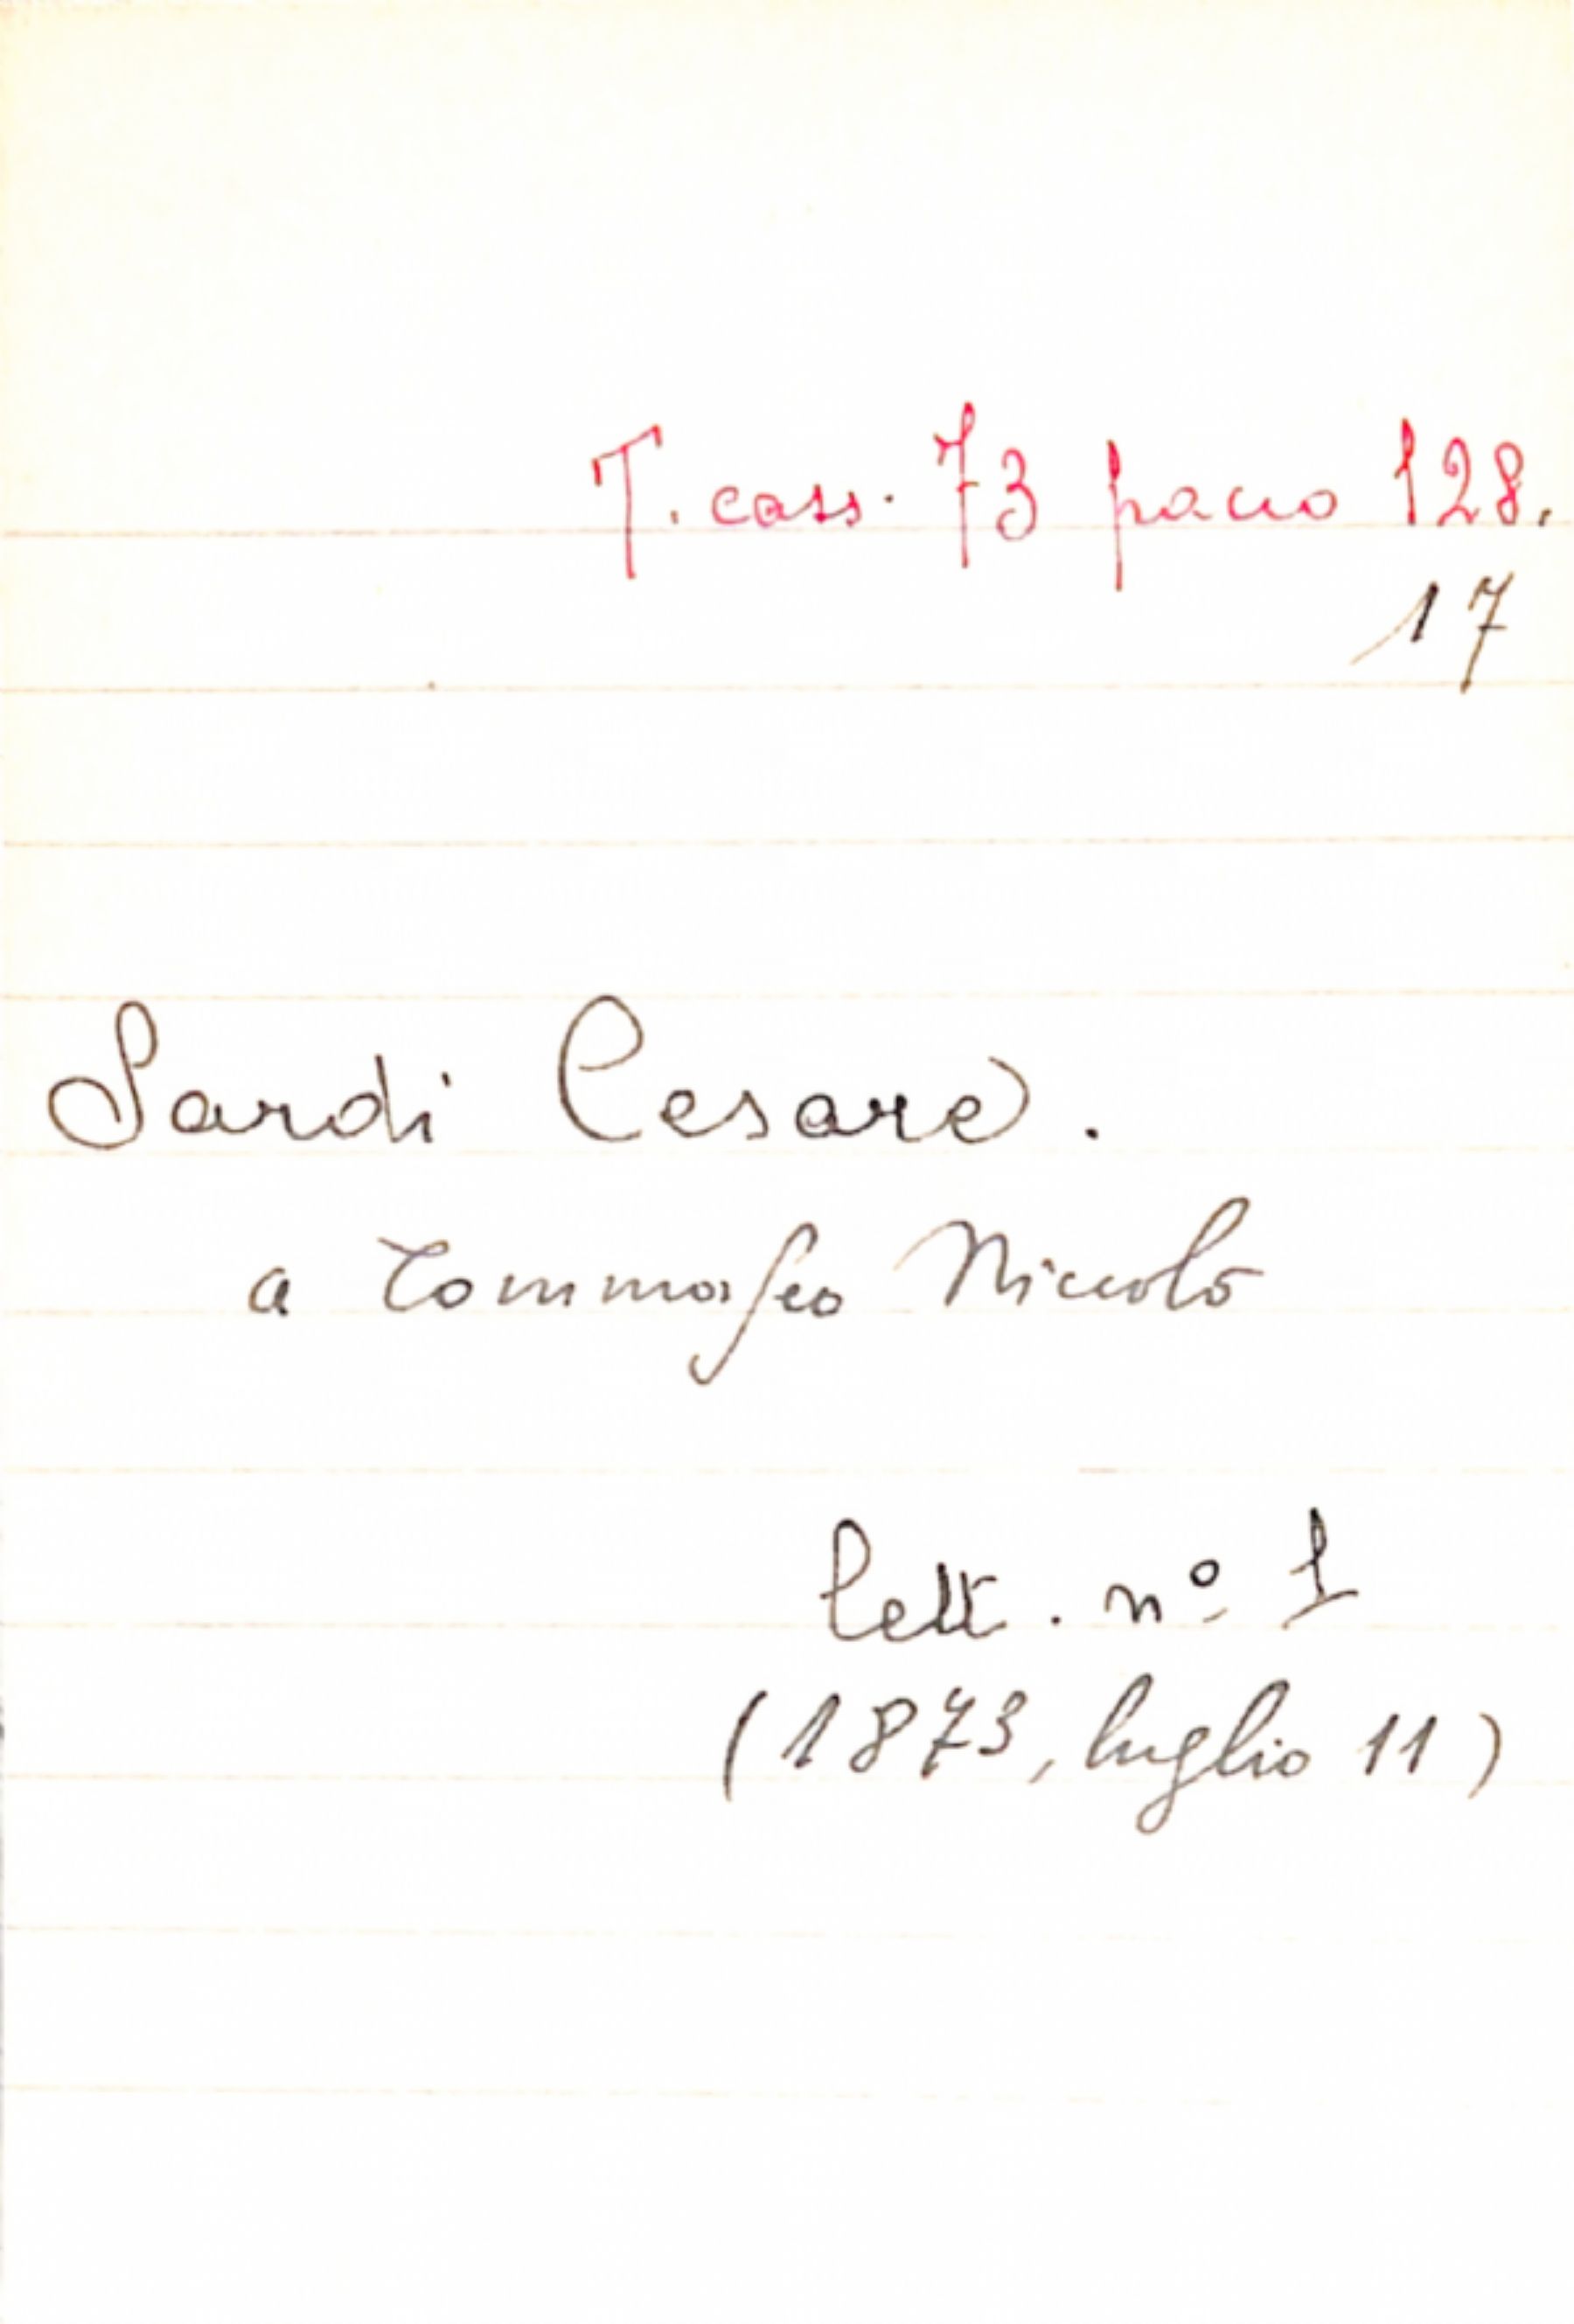 T. cass. 73 pacco 128.
17
Sardi Cesare.
a Tommaseo Niccolò
lett. nº 1
(1873, luglio 11)